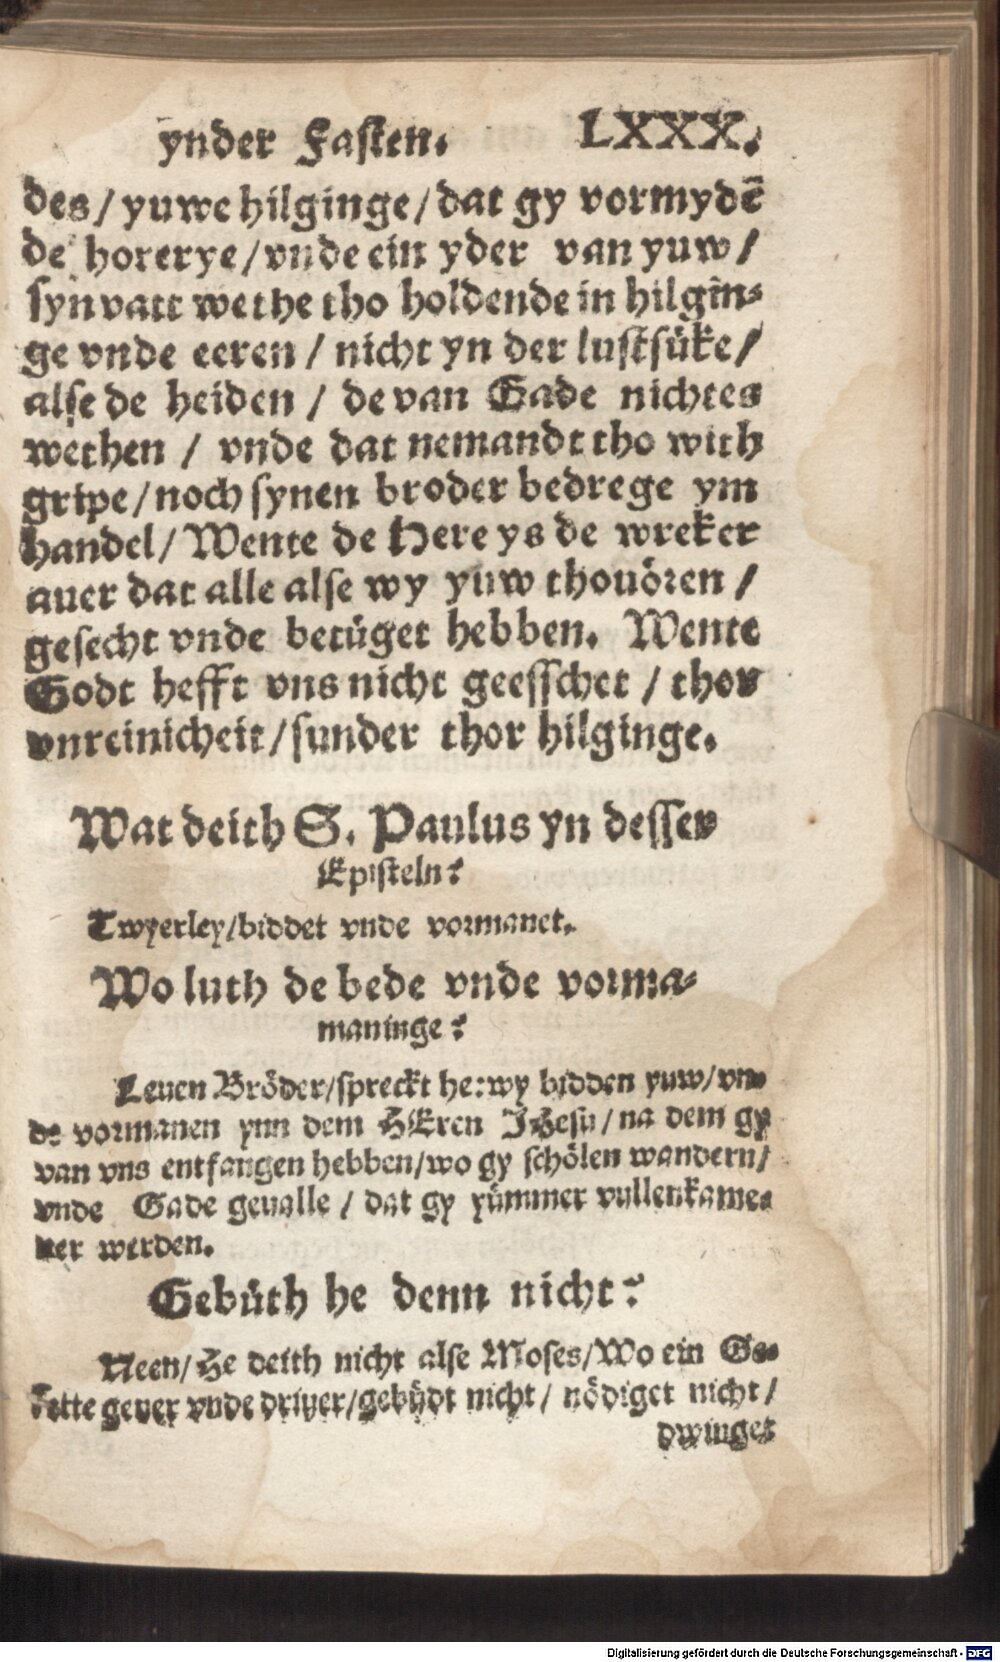 ynder Fasten. LXXX.
des / yuwe hilginge / dat gy vormydē
de horerye / vnde ein yder van yuw /
syn vatt wethe tho holdende in hilgin⸗
ge vnde eeren / nicht yn der lustsüke /
alse de heiden / de van Gade nichtes
wethen / vnde dat nemandt tho with
gripe / noch synen broder bedrege ym
handel / Wente de Here ys de wreker
auer dat alle alse wy yuw thouören /
gesecht vnde betüget hebben. Wente
Godt hefft vns nicht geesschet / thor
vnreinicheit / sunder thor hilginge.
Wat deith S. Paulus yn desser
Episteln?
Twyerley / biddet vnde vormanet.
Wo luth de bede vnde vorma⸗
maninge?
Leuen Bröder / spreckt he: wy bidden yuw / vn⸗
de vormanen ynn dem HEren JHesu / na dem gy
van vns entfangen hebben / wo gy schölen wandern /
vnde Gade geualle / dat gy yümmer vullenkame⸗
ner werden.
Gebüth he denn nicht?
Neen / He deith nicht alse Moses / Wo ein Ge⸗
sette geuer vnde driuer / gebüdt nicht / nödiget nicht /
dwinget
Digitalisierung gefördert durch die Deutsche Forschungsgemeinschaft - DFG